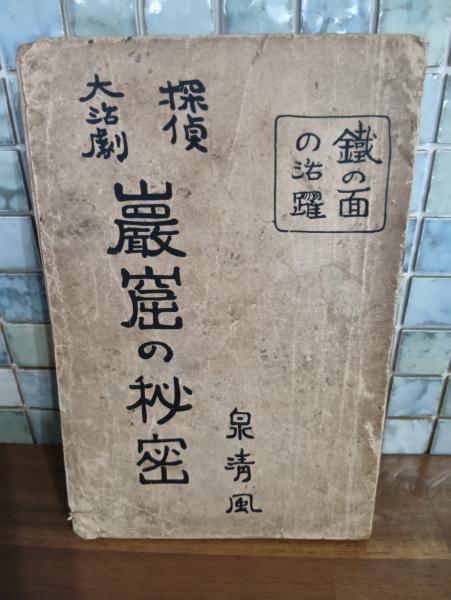 鐵の面
の活躍
探偵
大活劇
巖窟の秘密
泉清風